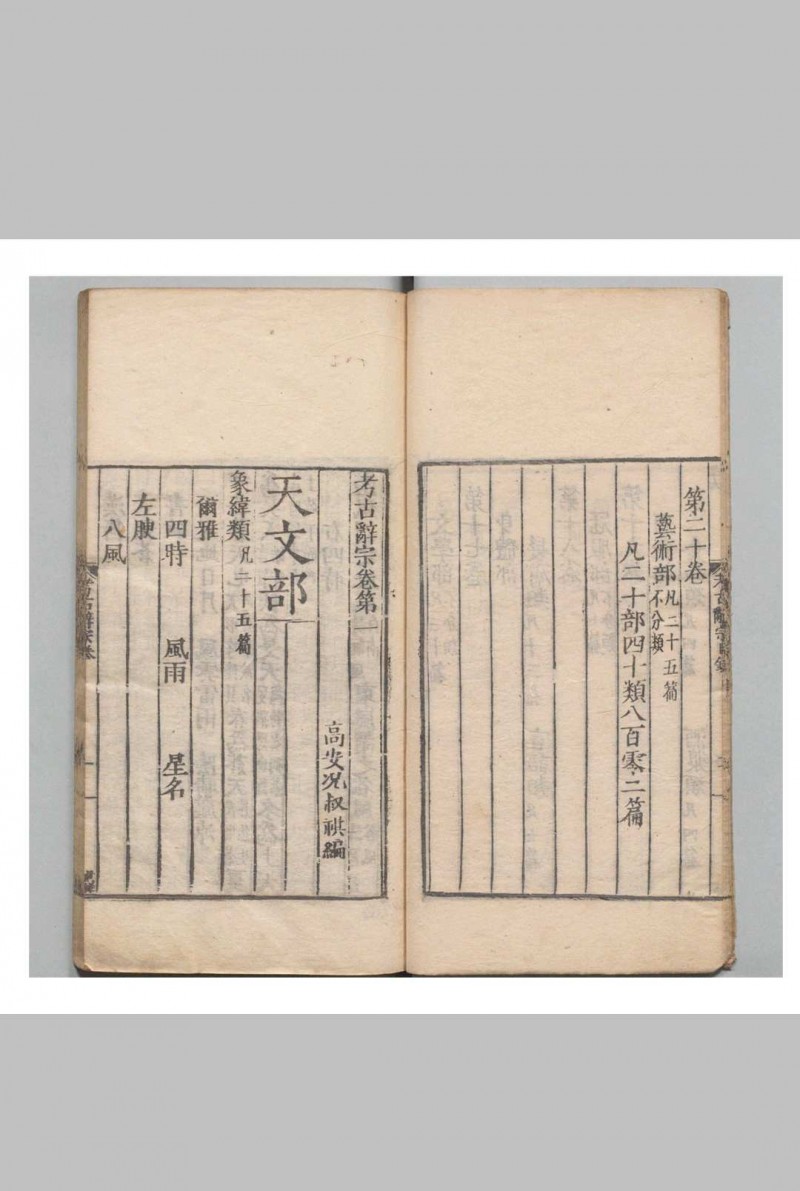 第二十卷
藝術部 凡二十五篇 不分類
凡二十部四十類八百零二篇
考古辭宗卷第一
高安况叔祺編
天文部
象緯類 凡二十五篇
爾雅
四時 風雨 星名
左腴
八風